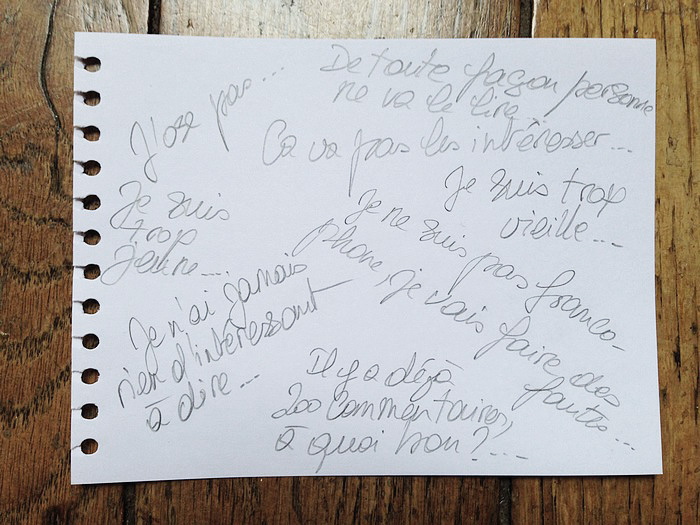 J'ose pas...
De toute façon personne
ne va le lire...
Ca va pas les intéresser...
Je suis trop
vieille...
Je suis
trop
jeune...
Je ne suis pas franco-
phone, je vais faire des
fautes...
Je n'ai jamais
rien d'intéressant
à dire...
Il y a déjà
200 commentaires,
à quoi bon?...